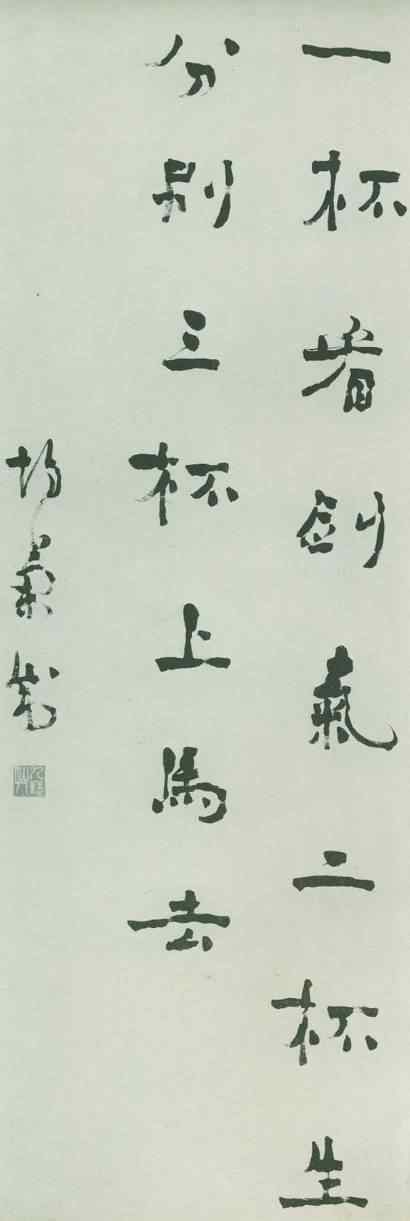 一杯看劍氣二杯生
分別三杯上馬去